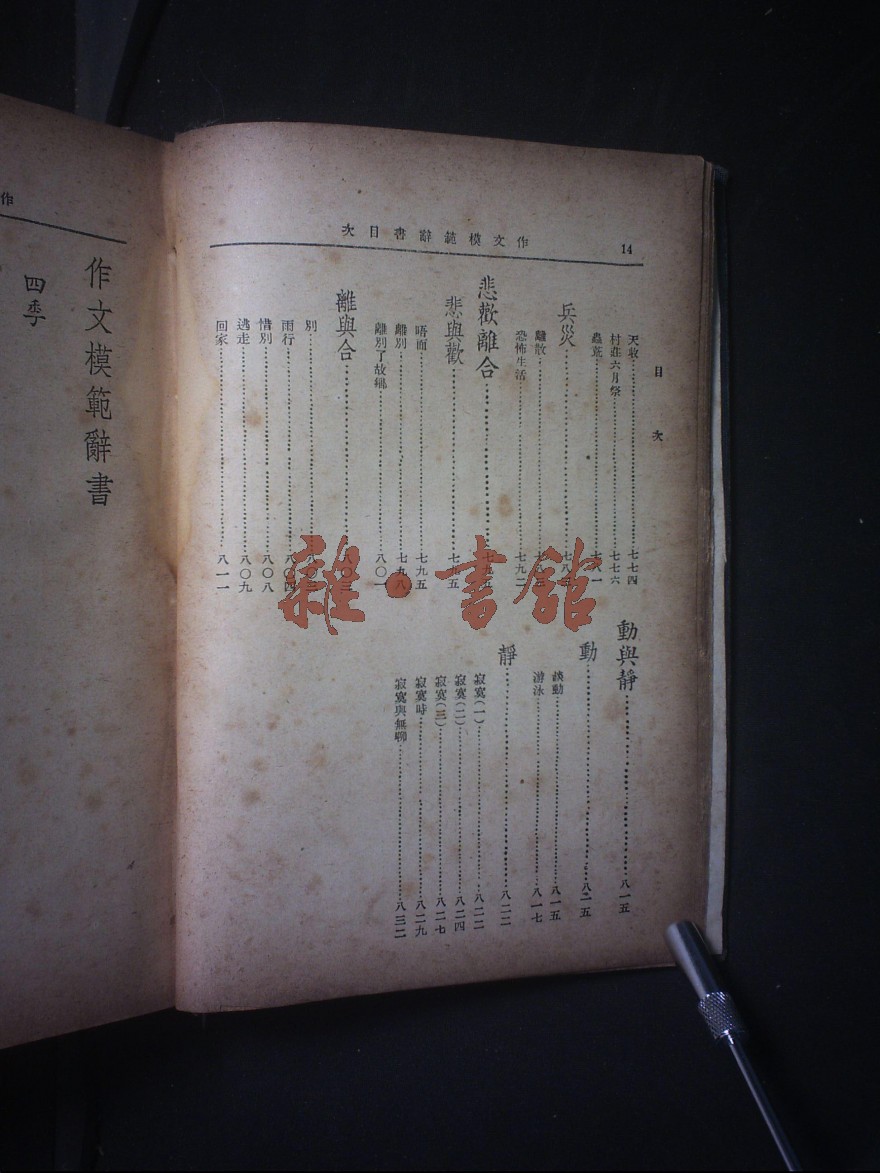 14
作文模範辭書目次
目次
天收……七七四
村莊六月祭……七七六
蟲荒……七八一
兵災……七八三
恐怖生活……七九二
悲歡離合……七九五
悲與歡……七九五
晤面……七九五
離別……七九八
離別了故鄉……八〇一
離與合……八〇三
別……八〇三
雨行……八〇四
惜別……八〇八
逃走……八〇九
回家……八一一
動與靜……八一五
動……八二五
談動……八一五
游泳……八一七
靜……八二二
寂寞(一)……八二二
寂寞(二)……八二四
寂寞(三)……八二七
寂寞時……八二九
寂寞與無聊……八三二
作
作文模範辭書
四季
雜·書館